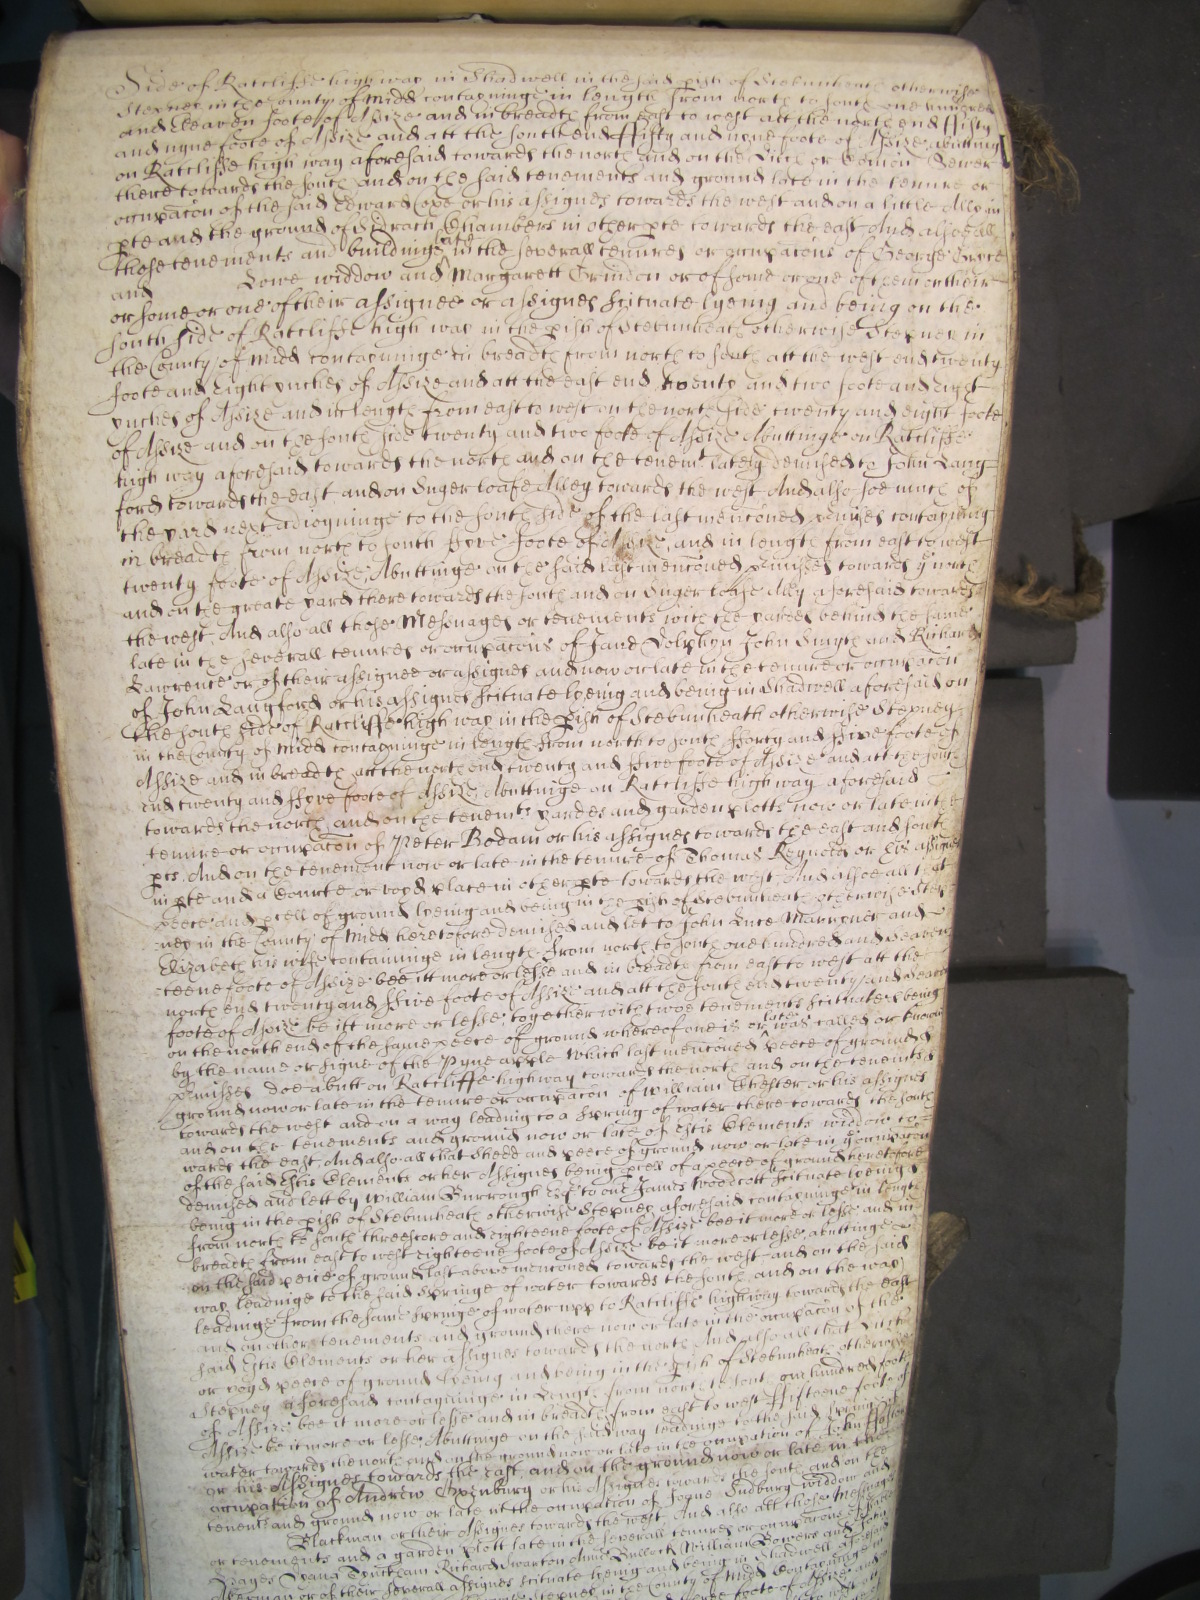 Side of Ratcliffe high way in Shadwell in the said pish of Stebunheath otherwise
Stepney in the County of Midd contayninge in length from north to south one hundred
and Seaven foote of Assize and in breadth from east to west att the north end ffifty
and nyne foote of Assize and att the south end ffifty and nyne foote of Assize abutting
on Ratcliffe high way aforesaid towards the north and on the or Comon Sewer
there towards the south and on the said tenements and ground late in the tenure or
occupacon of the said Edward Cope or his assignes towards the west and on a little Ally in
pte and the ground of Sidrach Chambers in other pte towards the east And also all
those tenements and buildings late in the severall tenures or occupacons of George
and Lowe widdow and Margarett Grindon or of some or one of them or their
or some or one of their assignee or assignes scituate lyeing and being on the
south side of Ratcliffe high way in the pish of Stebunheath otherwise Stepney in
the County of Midd contayninge in breadth from north to south att the west end twenty
foote and eight ynches of Assize and att the east end twenty and two foote and eight
ynches of Assize and in length from east to west on the north side twenty and eight foote
of Assize and on the south side twenty and two foote of Assize Abuttinge on Ratcliffe
high way aforesaid towards the north and on the tenemt lately demised to John Lang
ford towards the east and on Suger loafe Alley towards the west And also soe much of
the yard next adioyninge to the south side of the last menconed pmisses contayning
in breadth from north to south ffyve foote of Assize, and in length from east to west
twenty foote of Assize, Abuttinge on the said last menconed pmisses towards ye north
and on the greate yard there towards the south and on Suger loafe Ally aforesaid towards
the west And also all those Messuages or tenements with the yardes behind the same
late in the severall tenures or occupacons of Jane John Smyth and Richard
Lawrence or of their assignee or assignes and now or late in the tenure or occupacon
of John Langford or his assignes scituate lyeing and being in Shadwell aforesaid on
the south side of Ratcliffe high way in the pish of Stebunheath otherwise Stepney
in the County of Midd contayninge in length from north to south fforty and ffive foote of
Assize and in breadth att the north end twenty and ffive foote of Assize and att the south
end twenty and ffyve foote of Assize Abuttinge on Ratcliffe high way aforesaid
towards the north and on the tenemts yardes and garden plotts now or late in the
tenure or occupacon of Peter Bodam or his assignes towards the east and south
pts, And on the tenement now or late in the tenure of Thomas Reynolds or his assignes
in pte and a Courte or voyd place in other pte towards the west, And alsoe all that
peece and pcell of ground lyeing and being in the pish of Stebunheath otherwise Step
ney in the County of Midd heretofore demised and let to John Luce Marryner and
Elizabeth his wife contayninge in length from north to south one hundred and seaven
teene foote of Assize bee itt more or lesse and in breadth from east to west att the
north end twenty and ffive foote of Assize and att the south end twenty and seaven
foote of Assize be itt more or lesse, together with twoe tenements scituate & being
on the north end of the same peece of ground whereof one is or late was called or known
by the name or signe of the Pyne apple Which last menconed peece of ground &
pmisses doe abutt on Ratcliffe highway towards the north and on the tenements &
ground now or late in the tenure or occupacon of William Chester or his assignes
towards the west and on a way leading to a Spring of water there towards the south
and on the tenements and ground now or late of Clements widdow to
wards the east, And also all that Shedd and peece of ground now or late in ye occupacon
of the said Clements or her Assignes being pcell of a peece of ground heretofore
demised and lett by William Burrough Esqr to one James Woodcott scituate lyeing &
being in the pish of Stebunheath otherwise Stepney aforesaid contayninge in length
from north to south threescore and eighteene foote of Assize bee it more or lesse and in
breadth from east to west eighteene foote of Assize be it more or lesse, abuttinge
on the said peice of ground last above menconed towards the west and on the said
way leadinge to the said Springe of water towards the south and on the way
leadinge from the same Springe of water upp to Ratcliffe highway towards the east
and on other tenements and ground there now or late in the occupacon of the
said Clements or her assignes towards the north And also all that
or voyd peece of ground lyeing and being in the pish of Stebunheath otherwise
Stepney aforesaid contayninge in Length from north to south one hundred foote
of Assize bee it more or lesse and in breadth from east to west ffifteene foote of
Assize be it more or lesse, Abuttinge on the said way leadinge to the said Springe of
water towards the north and on the ground now or late in the occupation of
or his Assignes towards the east, and on the ground now or late in the
occupation of Andrew or his Assignes towards the south and on the
tenemts and ground now or late in the occupation of Sudbury widdow and
Blackman or their Assignes towards the west And also all those Messuages
or tenements and a garden plott late in the severall tenures or occupacons of
Richard Swarton Bullock William Bowers and John
or of their severall assignes scituate lyeing and being in Shadwell aforesaid
Stepney in the County of Midd Contayninge in
foote of Assize and